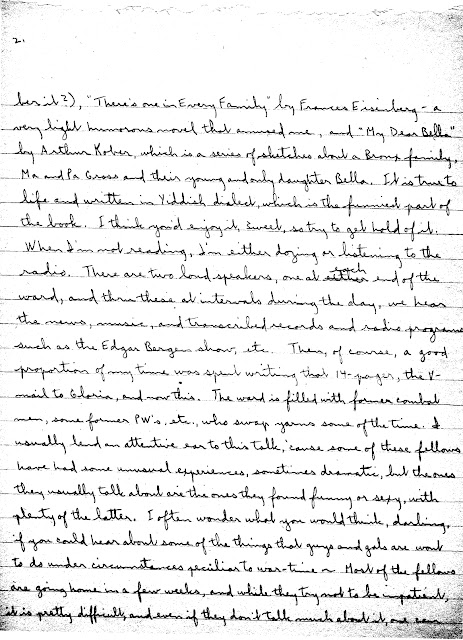 2.
ber it?), "There's one in Every Family" by Frances Eisenberg - a
very light humorous novel that amused me, and "My Dear Bella"
by Arthur Kober, which is a series of sketches about a Bronx family,
Ma and Pa Gross and their young and only daughter Bella. It is true to
life and written in Yiddish dialect, which is the funniest part of
the book. I think you'd enjoy it, Sweet, so try to get hold of it.
When I'm not reading, I'm either dozing or listening to the
radio. There are two loud speakers, one at either each end of the
ward, and thru these at intervals during the day, we hear
the news, music, and transcribed records and radio programs
such as the Edgar Bergen show, etc. Then, of course, a good
proportion of my time was spent writing that 14-pager, the V-
mail to Gloria, and now this. The ward is filled with former combat
men, some former PW's, etc., who swap yarns some of the time. I
usually lend an attentive ear to this talk, 'cause some of these fellows
have had some unusual experiences, sometimes dramatic, but the ones
they usually talk about are the ones they found funny or sexy, with
plenty of the latter. I often wonder what you would think, darling,
if you could hear about some of the things that guys and gals are wont
to do under circumstances peculiar to war-time ~ Most of the fellows
are going home in a few weeks, and while they try not to be impatient,
it is pretty difficult, and even if they don't talk much about it, one can